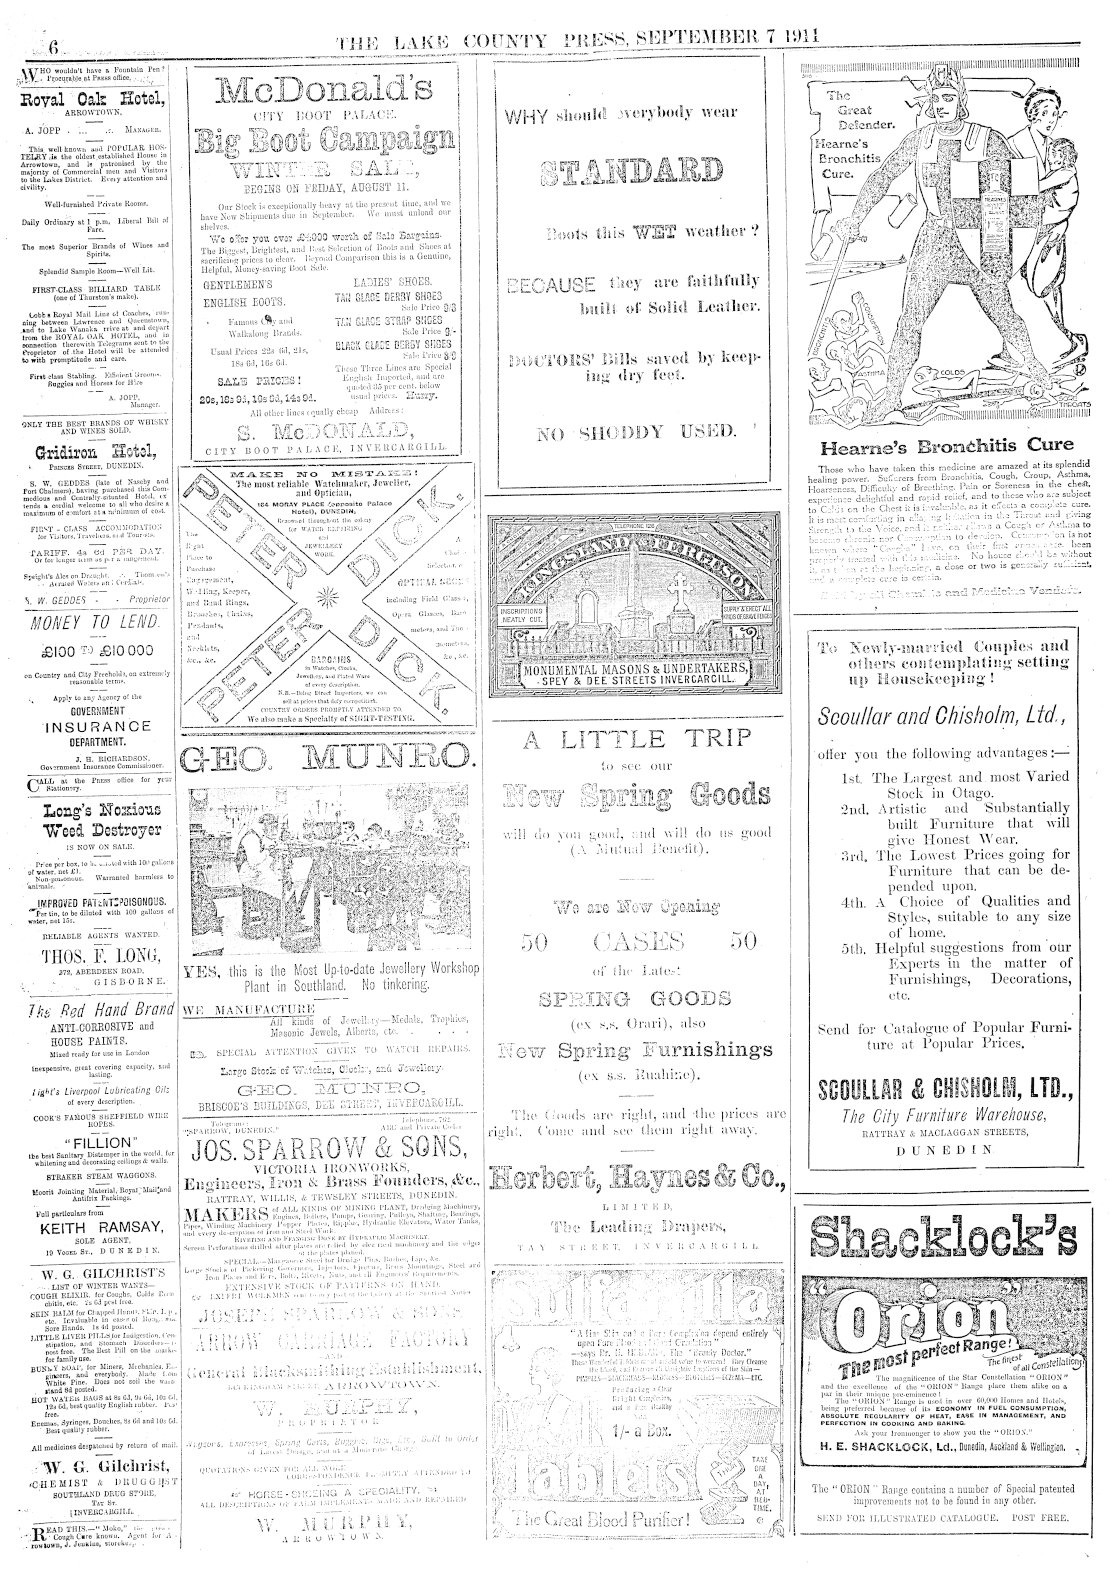 6
THE LAKE COUNTY PRESS, SEPTEMBER 7 1911
WHO wouldn't have a Fountain Pen?
Procurable at Press office.
Royal Oak Hotel,
ARROWTOWN.
A. JOPP . ... .: MANAGER.
This well-known and POPULAR HOS-
TELRY is the oldest established House in
Arrowtown, and is patronised by the
majority of Commercial men and Visitors
to the Lakes District. Every attention and
civility.
Well-furnished Private Rooms.
Daily Ordinary at 1 p.m. Liberal Bill of
Fare.
The most Superior Brands of Wines and
Spirits.
Splendid Sample Room—Well Lit.
FIRST-CLASS BILLIARD TABLE
(one of Thurston's make).
Cobb's Royal Mail Line of Coaches, run-
ning between Lawrence and Queenstown,
and to Lake Wanaka rrive at and depart
from the ROYAL OAK HOTEL, and in
connection therewith Telegrams sent to the
Proprietor of the Hotel will be attended
to with promptitude and care.
First class Stabling. Efficient Grooms.
Buggies and Horses for Hire
A. JOPP,
Manager.
ONLY THE BEST BRANDS OF WHISKY
AND WINES SOLD.
Gridiron Hotel,
PRINCES STREET, DUNEDIN.
S. W. GEDDES (late of Naseby and
Port Chalmers), having purchased this Com-
modious and Centrally-situated Hotel, ex
tends a cordial welcome to all who desire a
maximum of comfort at a minimum of cost.
FIRST - CLASS ACCOMMODATION
for Visitors, Travellers, and Tourists.
TARIFF. 4s 6d PER DAY.
Or for longer term as per arrangement.
Speight's Ales on Draught. .:. Thomson's
Aerated Waters and Cordials.
S. W. GEDDES - - Proprietor
MONEY TO LEND.
£100 TO £10 000
on Country and City Freeholds, on extremely
reasonable terms.
Apply to any Agency of the
GOVERNMENT
INSURANCE
DEPARTMENT.
J. H. RICHARDSON,
Government Insurance Commissioner.
CALL at the Press office for your
Stationery.
Long's Noxious
Weed Destroyer
IS NOW ON SALE.
Price per box, to be diluted with 100 gallons
of water, net £1.
Non-poisonous. Warranted harmless to
animals.
IMPROVED PATENT: POISONOUS.
Per tin, to be diluted with 100 gallons of
water, net 15s.
RELIABLE AGENTS WANTED.
THOS. F. LONG,
372, ABERDEEN ROAD,
GISBORNE.
The Red Hand Brand
ANTI-CORROSIVE and
HOUSE PAINTS.
Mixed ready for use in London
Inexpensive, great covering capacity, and
lasting.
Light's Liverpool Lubricating Oils
of every description.
COOK'S FAMOUS SHEFFIELD WIRE
ROPES.
"FILLION"
the best Sanitary Distemper in the world, for
whitening and decorating ceilings & walls.
STRAKER STEAM WAGGONS.
Moorit Jointing Material, Royal Mail, and
Antifrix Packings.
Full particulars from
KEITH RAMSAY,
SOLE AGENT,
19 VOGEL ST., DUNEDIN.
W. G. GILCHRIST'S
—LIST OF WINTER WANTS—
COUGH ELIXIR, for Coughs, Colds Bron
chitis, etc. 2s 6d post free.
SKIN BALM for Chapped Hands, Face, Lips,
etc. Invaluable in cases of Rough
Sore Hands. 1s 4d posted.
LITTLE LIVER PILLS for Indigestion, Con-
stipation, and Stomach Disorders—
post free. The Best Pill on the market
for family use.
BUNKY SOAP, for Miners, Mechanics, En-
gineers, and everybody. Made from
White Pine. Does not soil the wash
stand 8d posted.
HOT WATER BAGS at 8s 6d, 9s 6d, 10s 6d,
12s 6d, best quality English rubber. Post
free.
Enemas, Syringes, Douches, 8s 6d and 10s 6d.
Best quality rubber.
All medicines despatched by return of mail.
W. G. Gilchrist,
CHEMIST & DRUGGIST
SOUTHLAND DRUG STORE,
TAY ST.
INVERCARGILL.
READ THIS.—"Moko,"
Cough Cure known. Agent for A
rowtown, J. Jenkins, storekeeper.
McDonald's
CITY BOOT PALACE.
Big Boot Campaign
WINTER SALE,
BEGINS ON FRIDAY, AUGUST 11.
Our Stock is exceptionally heavy at the present time, and we
have New Shipments due in September. We must unload our
shelves.
We offer you over £4,000 worth of Sale Bargains.
The Biggest, Brightest, and Best Selection of Boots and Shoes at
sacrificing prices to clear. Beyond Comparison this is a Genuine,
Helpful, Money-saving Boot Sale.
GENTLEMEN'S
ENGLISH BOOTS.
Famous City and
Walkalong Brands.
Usual Prices 22s 6d, 21s,
18s 6d, 16s 6d.
SALE PRICES!
20s, 18s 9d, 16s 9d, 14s 9d.
LADIES' SHOES.
TAN GLACE DERBY SHOES
Sale Price 9/3
TAN GLACE STRAP SHOES
Sale Price 9/-
BLACK GLACE DERBY SHOES
Sale Price 8/9
These Three Lines are Special
English Imported, and are
quoted 35 per cent. below
usual prices. Hurry.
All other lines equally cheap Address:
S. McDONALD,
CITY BOOT PALACE, INVERCARGILL.
MAKE NO MISTAKE!
The most reliable Watchmaker, Jeweller,
and Optician,
184 MORAY PLACE (opposite Palace
Hotel), DUNEDIN.
Renowned throughout the colony
for WATCH REPAIRING
and
JEWELLERY
WORK.
PETER DICK.
The
Right
Place to
Purchase
Engagement,
Wedding, Keeper,
and Band Rings,
Brooches, Chains,
Pendants,
and
Necklets,
&c., &c.
OPTICAL GOODS
including Field Glasses,
Opera Glasses, Baro
meters, and Ther
mometers,
&c., &c.
PETER DICK.
BARGAINS
in Watches, Clocks,
Jewellery, and Plated Ware
of every description.
N.B.—Being Direct Importers, we can
sell at prices that defy competition.
COUNTRY ORDERS PROMPTLY ATTENDED TO.
We also make a Specialty of SIGHT-TESTING.
GEO. MUNRO.
YES, this is the Most Up-to-date Jewellery Workshop
Plant in Southland. No tinkering.
WE MANUFACTURE
All kinds of Jewellery—Medals, Trophies,
Masonic Jewels, Alberts, etc.
SPECIAL ATTENTION GIVEN TO WATCH REPAIRS.
Large Stock of Watches, Clocks, and Jewellery.
GEO. MUNRO,
BRISCOE'S BUILDINGS, DEE STREET, INVERCARGILL.
Telegrams:
"SPARROW, DUNEDIN."
Telephone, 762
ABC and Private Codes
JOS. SPARROW & SONS,
VICTORIA IRONWORKS,
Engineers, Iron & Brass Founders, &c.,
RATTRAY, WILLIS, & TEWSLEY STREETS, DUNEDIN.
MAKERS of ALL KINDS OF MINING PLANT, Dredging Machinery,
Engines, Boilers, Pumps, Gearing, Pulleys, Shafting, Bearings,
Pipes, Winding Machinery Hopper Plates, Ripples, Hydraulic Elevators, Water Tanks,
and every description of Iron and Steel Work.
RIVETING AND FLANGING DONE BY HYDRAULIC MACHINERY.
Screen Perforations drilled after plates are rolled by electric machinery and the edges
of the plates planed.
SPECIAL.—Manganese Steel for Dredge Pins, Bushes, Lips, &c.
EXTENSIVE STOCK OF PATTERNS ON HAND.
JOSEPH SPARROW & SONS
ARROW CARRIAGE FACTORY
AND
General Blacksmithing Establishment
BUCKINGHAM STREET, ARROWTOWN.
W. MURPHY,
PROPRIETOR
Waggons, Expresses, Spring Carts, Buggies, Gigs, Etc., Built to Order
of Latest Design, and at a Moderate Charge.
QUOTATIONS GIVEN FOR ALL WORK
CORRESPONDENCE PROMPTLY ATTENDED TO
HORSE-SHOEING A SPECIALITY.
ALL DESCRIPTIONS OF FARM IMPLEMENTS MADE AND REPAIRED
W. MURPHY,
ARROWTOWN.
WHY should everybody wear
STANDARD
Boots this WET weather?
BECAUSE they are faithfully
built of Solid Leather.
DOCTORS' Bills saved by keep-
ing dry feet.
NO SHODDY USED.
TELEPHONE 126
KINGSLAND & FERGUSON
INSCRIPTIONS
NEATLY CUT.
SUPPLY & ERECT ALL
KINDS OF GRAVE FENCES
MONUMENTAL MASONS & UNDERTAKERS,
SPEY & DEE STREETS INVERCARGILL.
A LITTLE TRIP
to see our
New Spring Goods
will do you good, and will do us good
(A Mutual Benefit).
We are Now Opening
50 CASES 50
of the Latest
SPRING GOODS
(ex s.s. Orari), also
New Spring Furnishings
(ex s.s. Ruahine).
The Goods are right, and the prices are
right. Come and see them right away.
Herbert, Haynes & Co.,
LIMITED,
The Leading Drapers,
TAY STREET, INVERCARGILL
"A Fine Skin and a Pure Complexion depend entirely
Producing a Clear
1/- a Box.
Tablets
TAKE
ONE
A
DAY,
AT
BED-
TIME.
The Great Blood Purifier!
The
Great
Defender.
Hearne's
Bronchitis
Cure.
ASTHMA
COLDS
SORE THROATS
Hearne's Bronchitis Cure
Those who have taken this medicine are amazed at its splendid
healing power. Sufferers from Bronchitis, Cough, Croup, Asthma,
Hoarseness, Difficulty of Breathing, Pain or Soreness in the chest,
experience delightful and rapid relief, and to those who are subject
to Colds on the Chest it is invaluable, as it effects a complete cure.
It is most comforting in allaying Irritation in the Throat and giving
Strength to the Voice, and it neither allows a Cough or Asthma to
become chronic nor Consumption to develop. Consumption is not
known where "Coughs" have, on their first appearance, been
properly treated with this medicine. No house should be without
it, as taken at the beginning, a dose or two is generally sufficient,
and a complete cure is certain.
Sold by all Chemists and Medicine Vendors.
To Newly-married Couples and
others contemplating setting
up Housekeeping!
Scoullar and Chisholm, Ltd.,
offer you the following advantages:—
1st. The Largest and most Varied
Stock in Otago.
2nd. Artistic and Substantially
built Furniture that will
give Honest Wear.
3rd. The Lowest Prices going for
Furniture that can be de-
pended upon.
4th. A Choice of Qualities and
Styles, suitable to any size
of home.
5th. Helpful suggestions from our
Experts in the matter of
Furnishings, Decorations,
etc.
Send for Catalogue of Popular Furni-
ture at Popular Prices.
SCOULLAR & CHISHOLM, LTD.,
The City Furniture Warehouse,
RATTRAY & MACLAGGAN STREETS,
DUNEDIN.
Shacklock's
"Orion"
The most perfect Range!
The finest
of all Constellations
The magnificence of the Star Constellation "ORION"
and the excellence of the "ORION" Range place them alike on a
par in their unique pre-eminence!
The "ORION" Range is used in over 60,000 Homes and Hotels,
being preferred because of its ECONOMY IN FUEL CONSUMPTION,
ABSOLUTE REGULARITY OF HEAT, EASE IN MANAGEMENT, AND
PERFECTION IN COOKING AND BAKING.
Ask your Ironmonger to show you the "ORION."
H. E. SHACKLOCK, Ld., Dunedin, Auckland & Wellington.
The "ORION" Range contains a number of Special patented
improvements not to be found in any other.
SEND FOR ILLUSTRATED CATALOGUE. POST FREE.